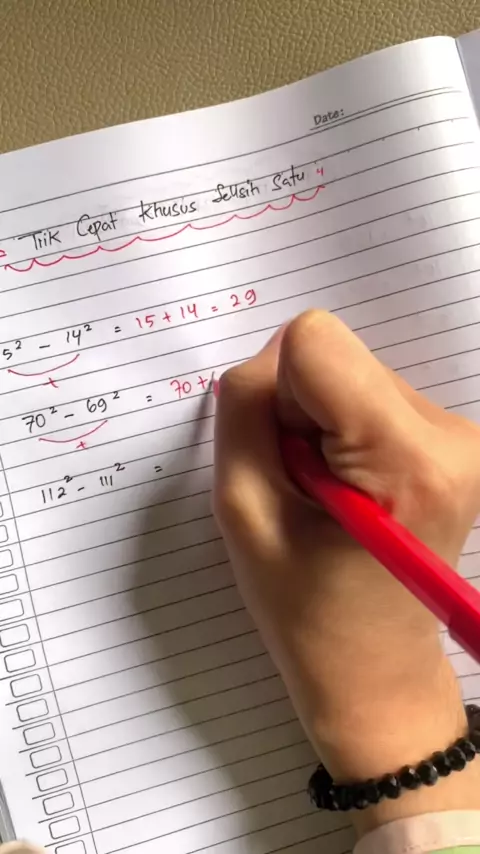 Date:
Trik Cepat Khusus Selisih Satu "
5² - 14² = 15 + 14 = 29
+
70² - 69² = 70 +
+
112² - 111² =